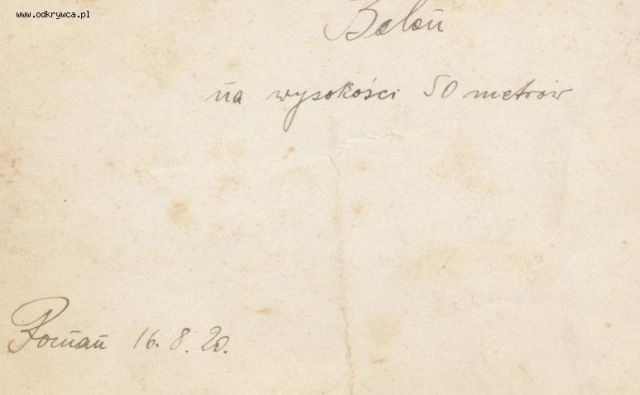 www.odkrywca.pl
Balon
na wysokości 50 metrów
Poznań 16.8.20.